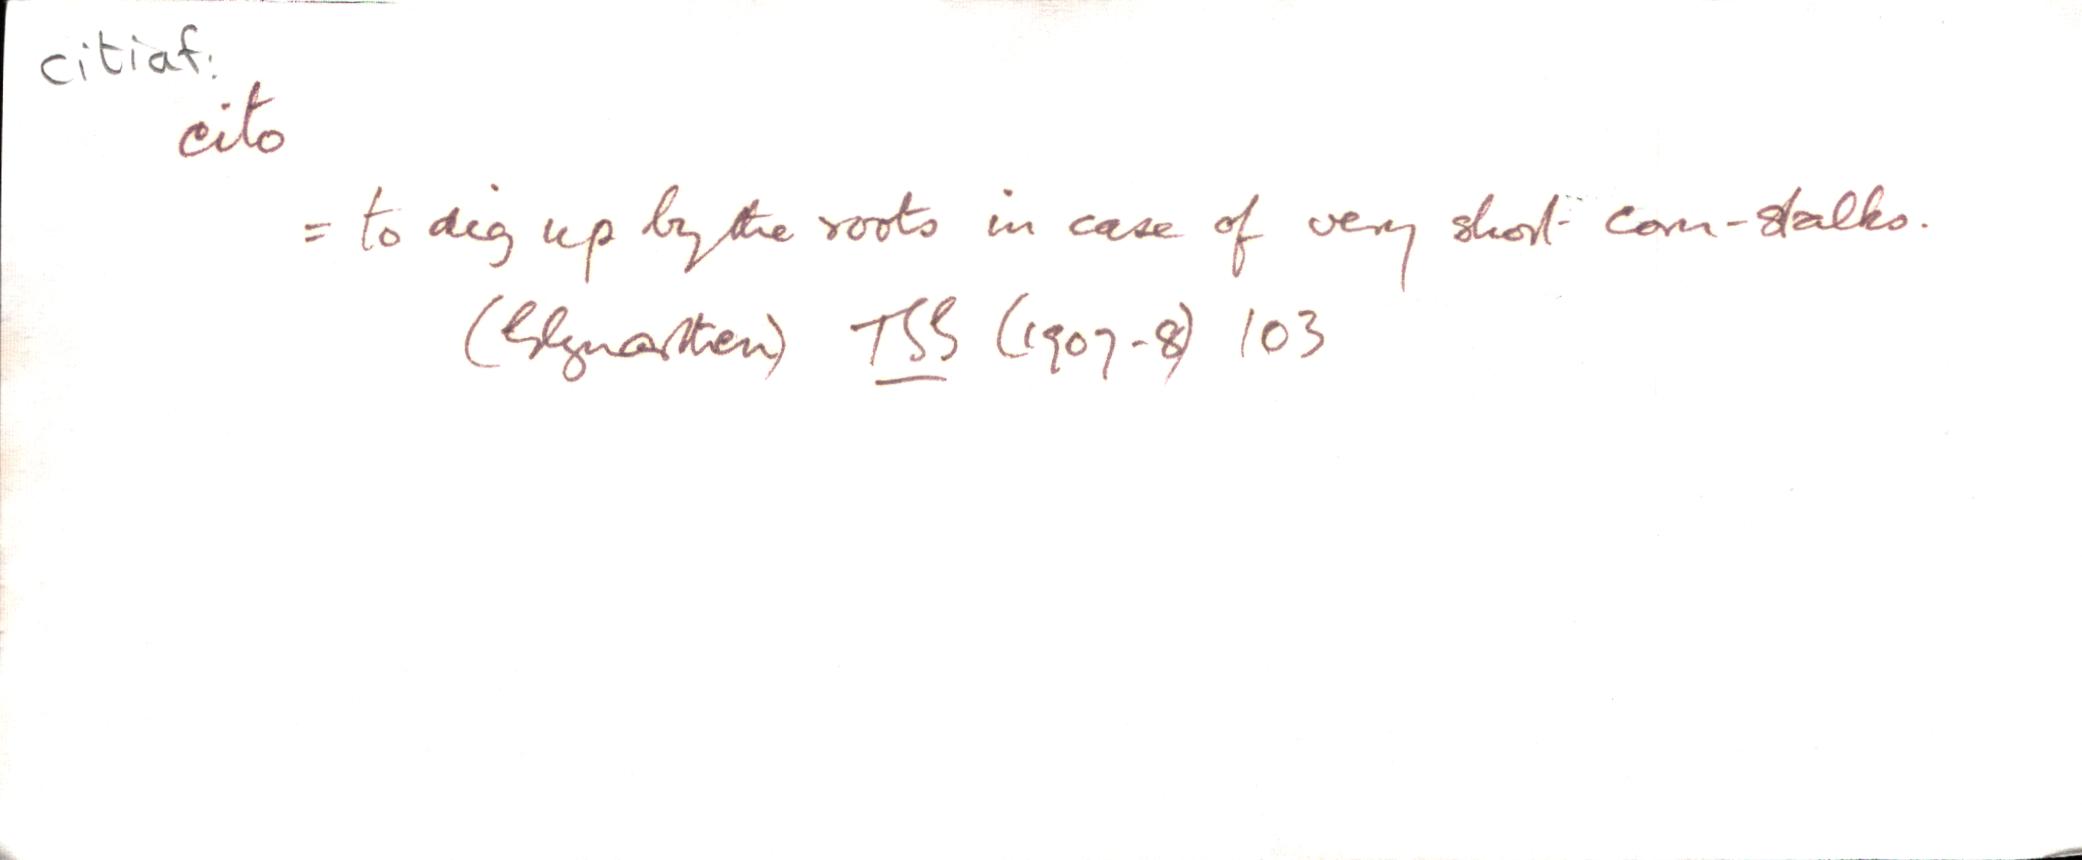 citiaf:
cito
= to dig up by the roots in case of very short corn-stalks.
(Eglwysilan) TSS (1907-8) 103